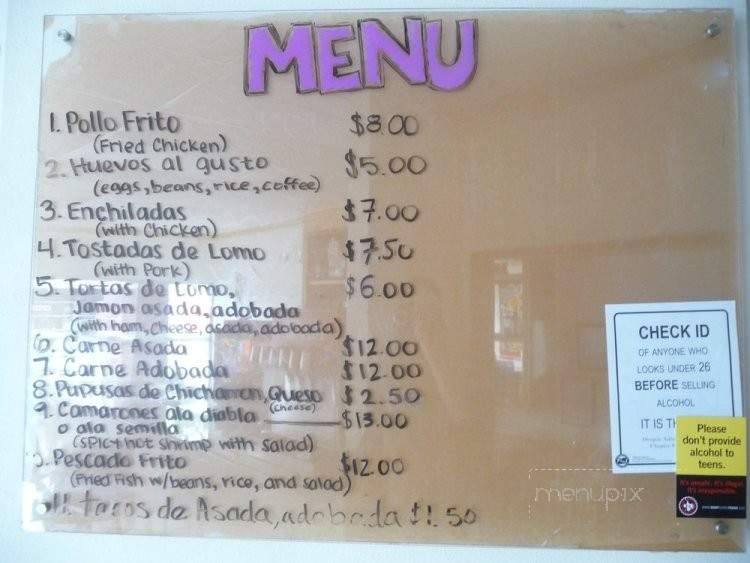 MENU
1. Pollo Frito $8.00
(Fried Chicken)
2. Huevos al gusto $5.00
(eggs, beans, rice, coffee)
3. Enchiladas $7.00
(with Chicken)
4. Tostadas de Lomo $7.50
(with Pork)
5. Tortas de Lomo, $6.00
Jamon asada, adobada
(with ham, cheese, asada, adobada)
6. Carne Asada $12.00
7. Carne Adobada $12.00
8. Pupusas de Chicharron, Queso $2.50
(cheese)
9. Camarones ala diabla $13.00
o ala semilla
(SPICY hot shrimp with salad)
Pescado Frito $12.00
(Fried Fish w/beans, rice, and salad)
11. tacos de Asada, adobada $1.50
CHECK ID
OF ANYONE WHO
LOOKS UNDER 26
BEFORE SELLING
ALCOHOL
IT IS
Please
don't provide
alcohol to
teens.
It's unsafe. It's illegal.
It's irresponsible.
menupix